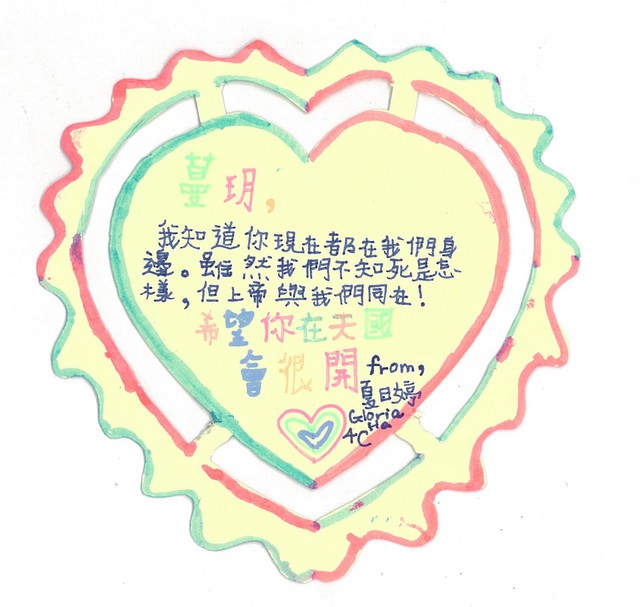 蔓玥，
我知道你現在都在我們身
邊。雖然我們不知死是怎
樣，但上帝與我們同在！
希望你在天國
會很開
from,
夏日婷
Gloria
Ha
4C